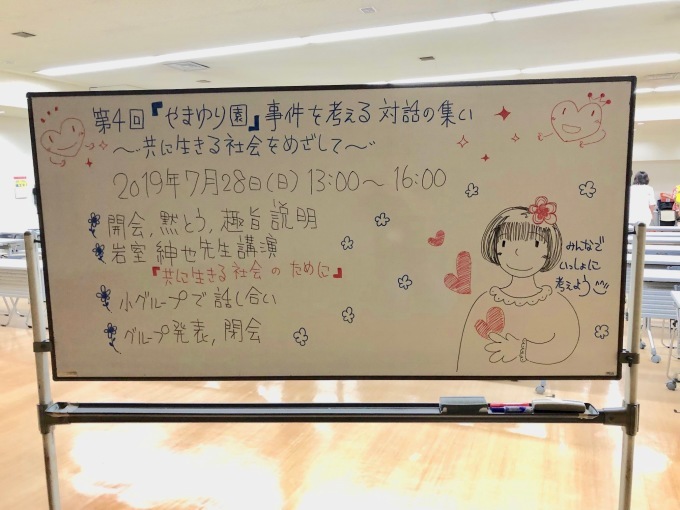 第4回『やまゆり園』事件を考える 対話の集い
～共に生きる社会をめざして～
2019年7月28日(日) 13:00～16:00
開会,黙とう,趣旨説明
岩室紳也先生講演
『共に生きる社会のために』
小グループで話し合い
グループ発表,閉会
みんなで
いっしょに
考えよう